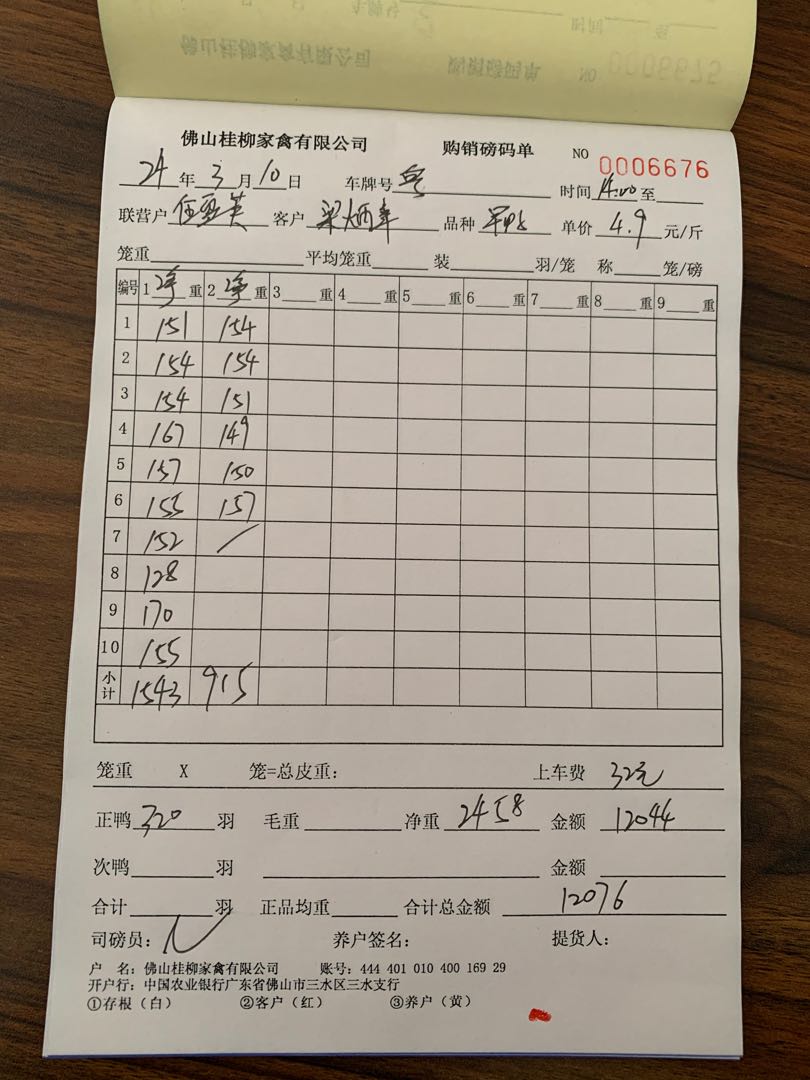 佛山桂柳家禽有限公司 购销磅码单 NO 0006675
佛山桂柳家禽有限公司 购销磅码单 NO 0006676
24年3月10日 车牌号 时间14:00至
联营户 客户 梁炳幸 品种 单价 4.9 元/斤
笼重 平均笼重 装 羽/笼 称 笼/磅
编号 1净重 2净重 3重 4重 5重 6重 7重 8重 9重
1 151 154
2 154 154
3 154 151
4 167 149
5 157 150
6 155 157
7 152 /
8 128
9 170
10 155
小计 1543 915
笼重 X 笼=总皮重: 上车费 32元
正鸭 320 羽 毛重 净重 2458 金额 12044
次鸭 羽 金额
合计 羽 正品均重 合计总金额 12076
司磅员: 养户签名: 提货人:
户 名: 佛山桂柳家禽有限公司 账号: 444 401 010 400 169 29
开户行: 中国农业银行广东省佛山市三水区三水支行
①存根(白) ②客户(红) ③养户(黄)